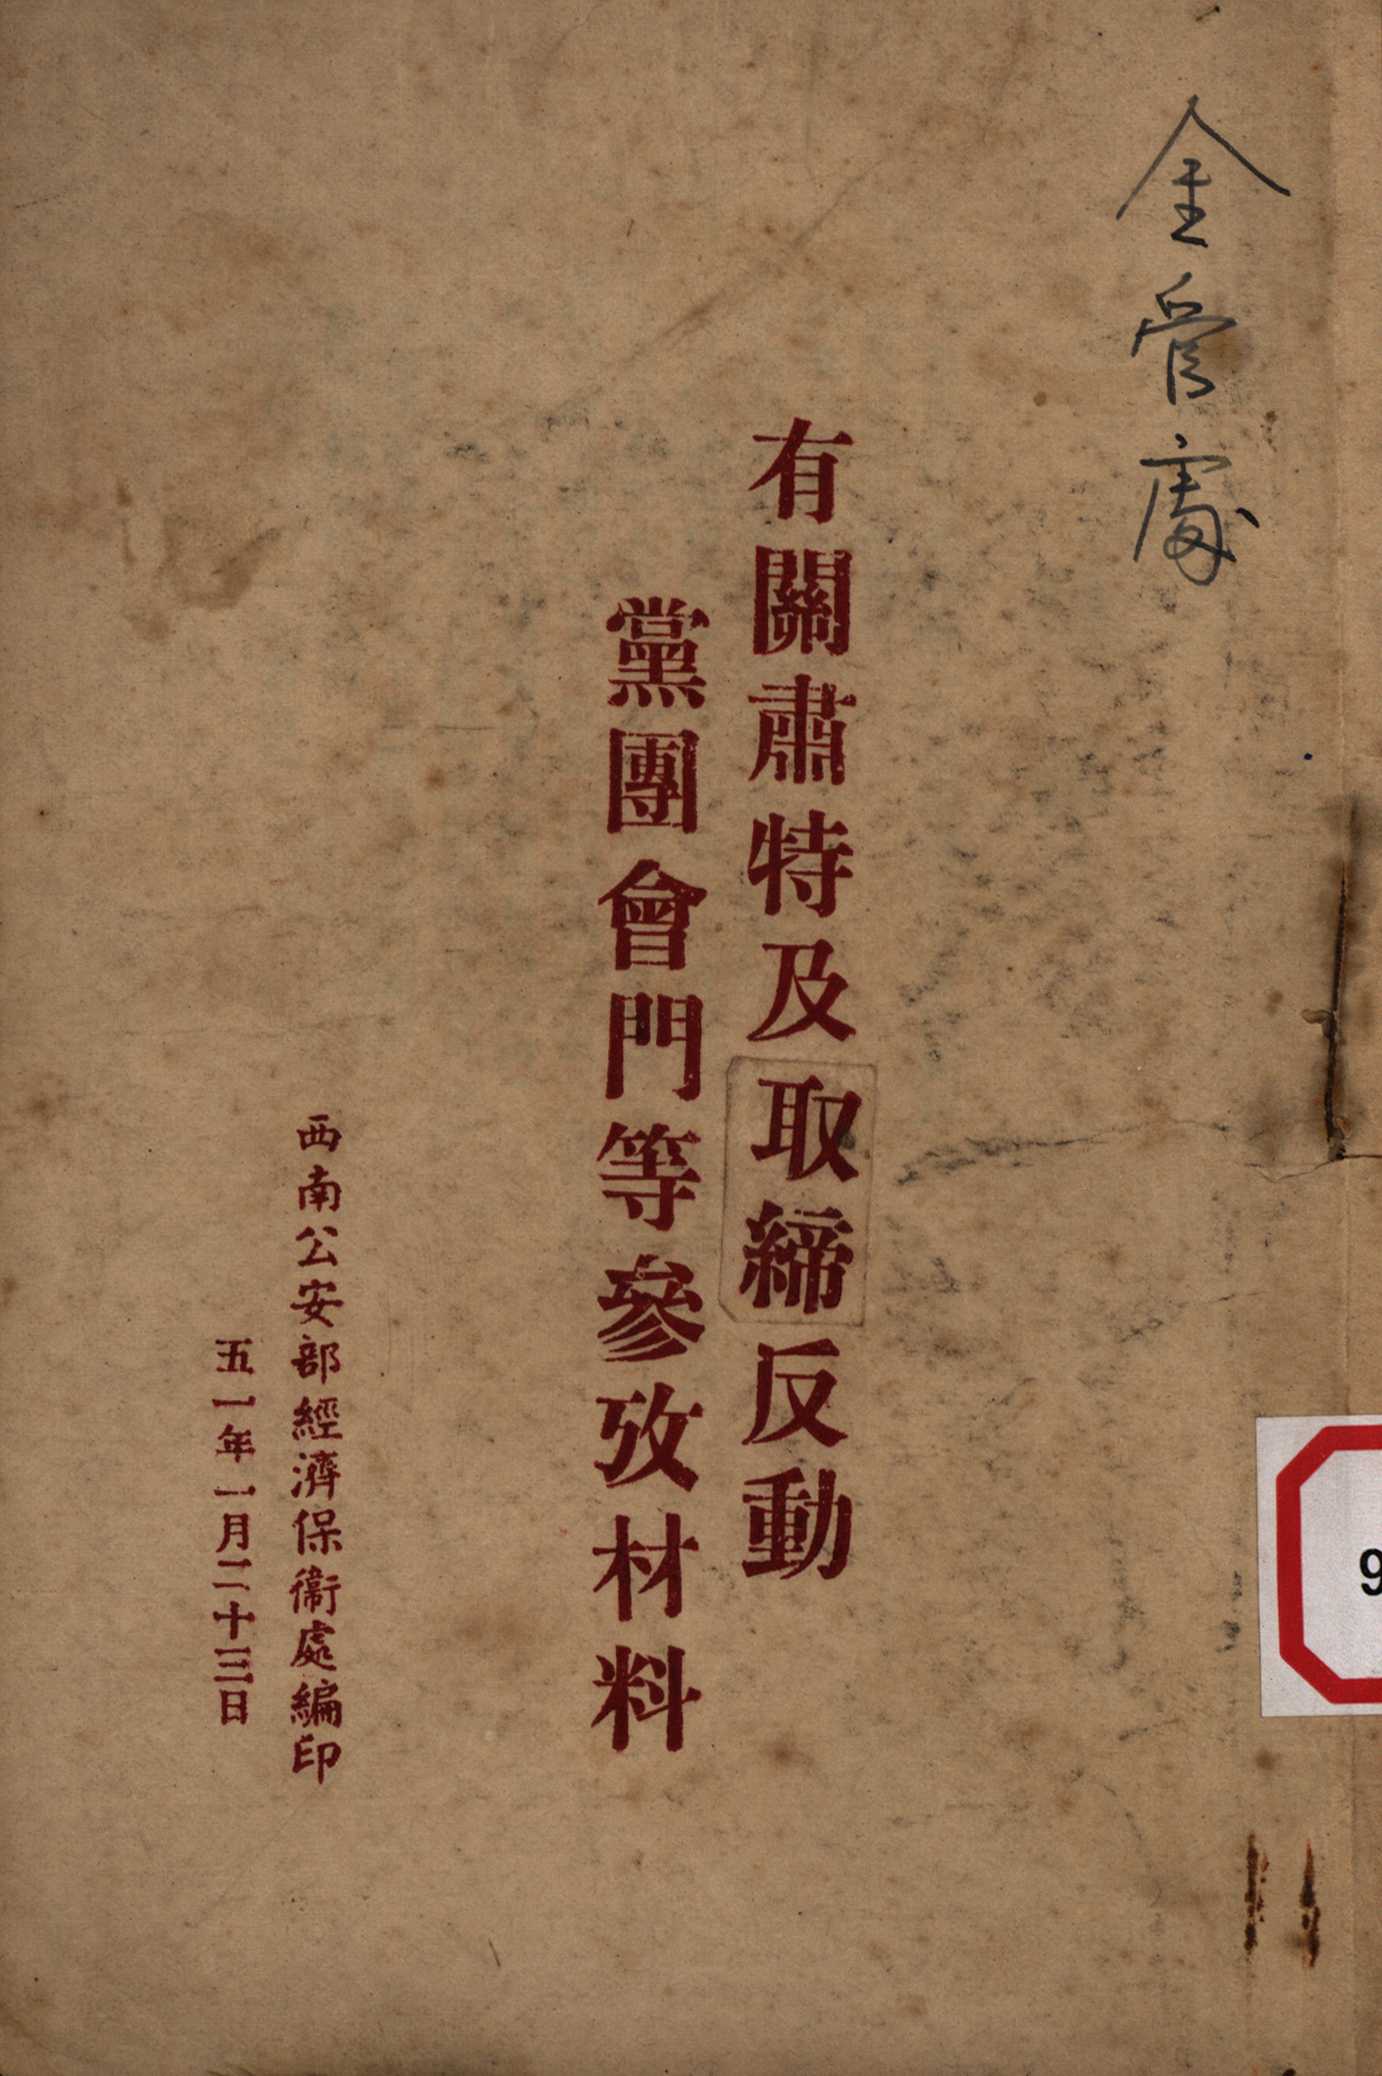 金管處
有關肅特及取締反動
黨團會門等參攷材料
西南公安部經濟保衞處編印
五一年一月二十三日
9